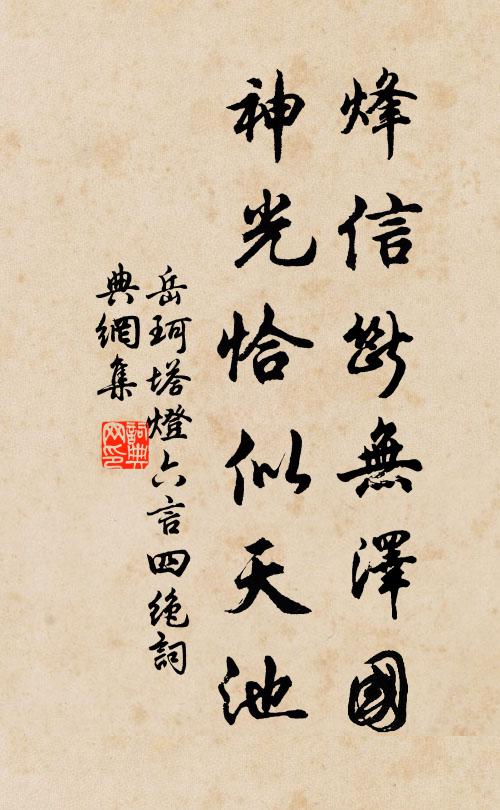 烽信斷無澤國
神光恰似天池
岳珂塔燈六言四绝詞
典網集
詞典
网印